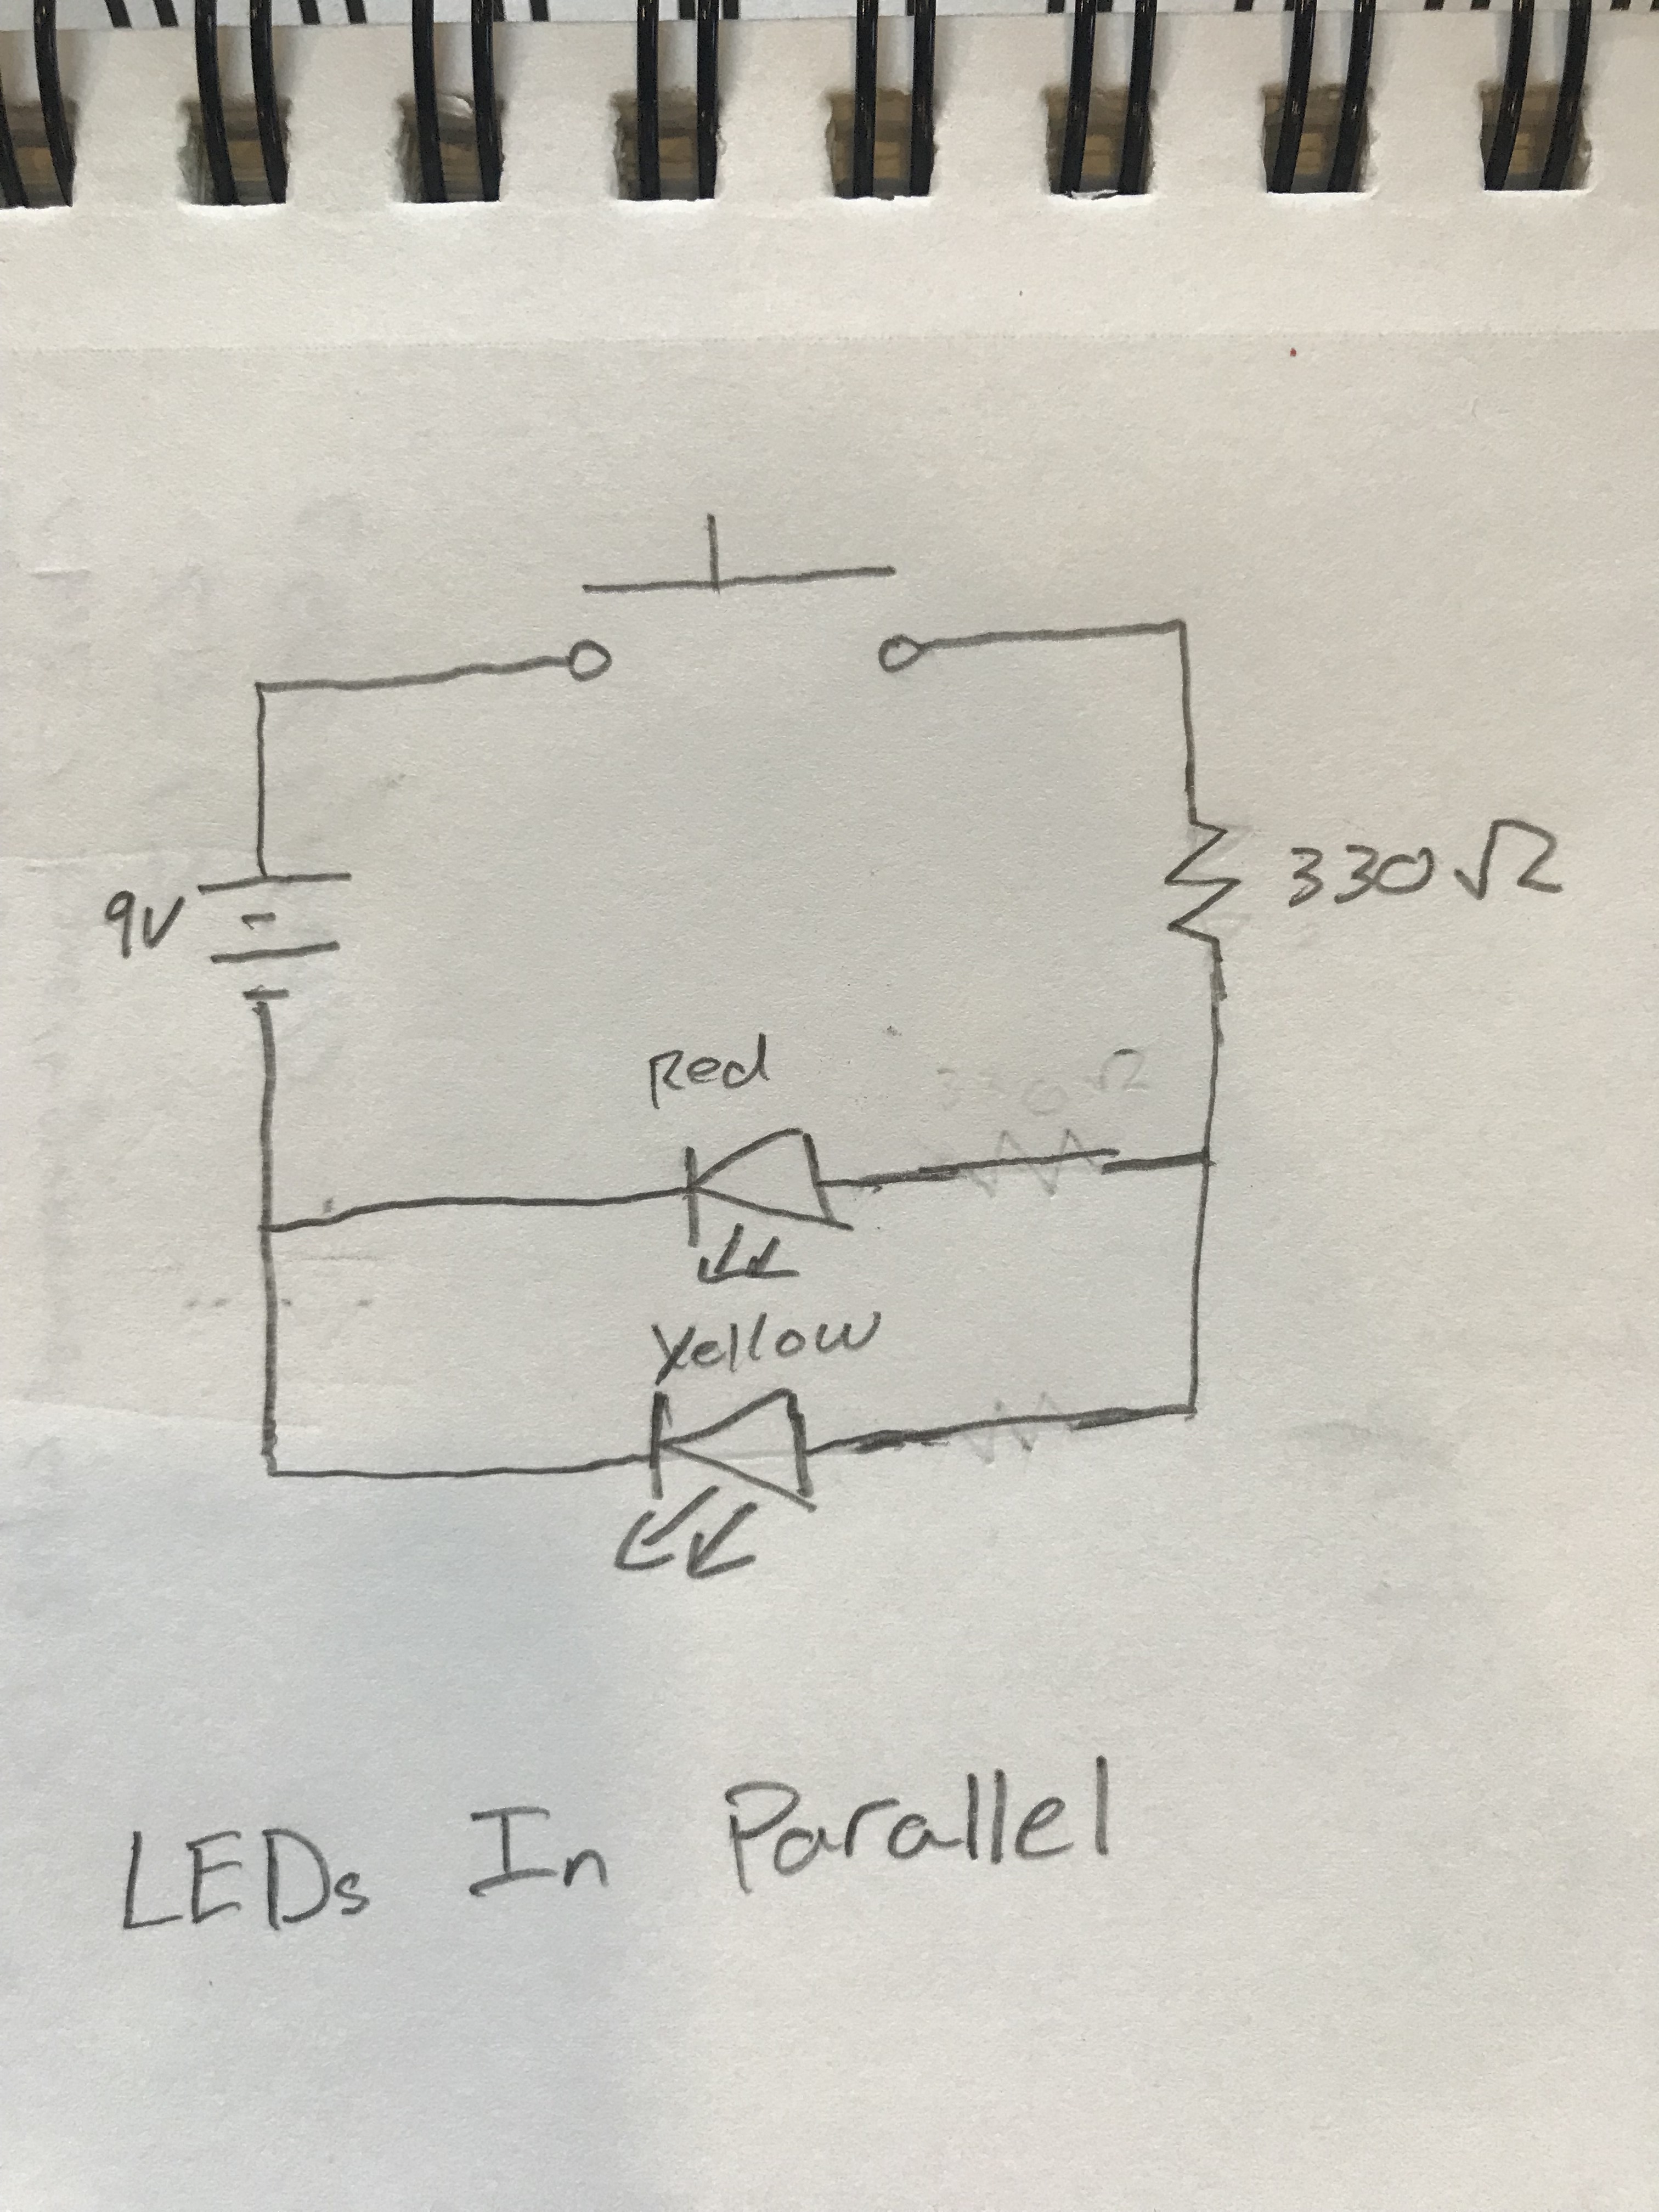 9V
330Ω
Red
330Ω
Yellow
LEDs In Parallel